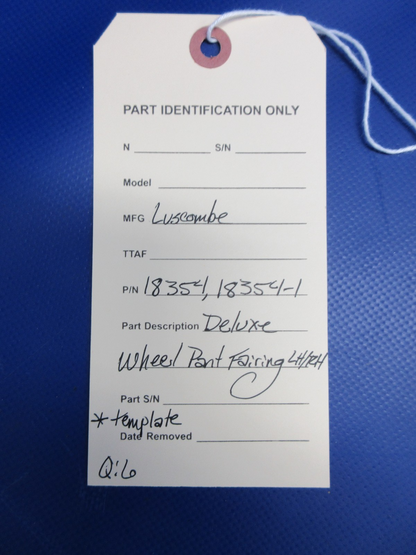 PART IDENTIFICATION ONLY
N S/N
Model
MFG Luscombe
TTAF
P/N 18354, 18354-1
Part Description Deluxe
Wheel Pant Fairing LH/RH
Part S/N
* template
Date Removed
Q:6